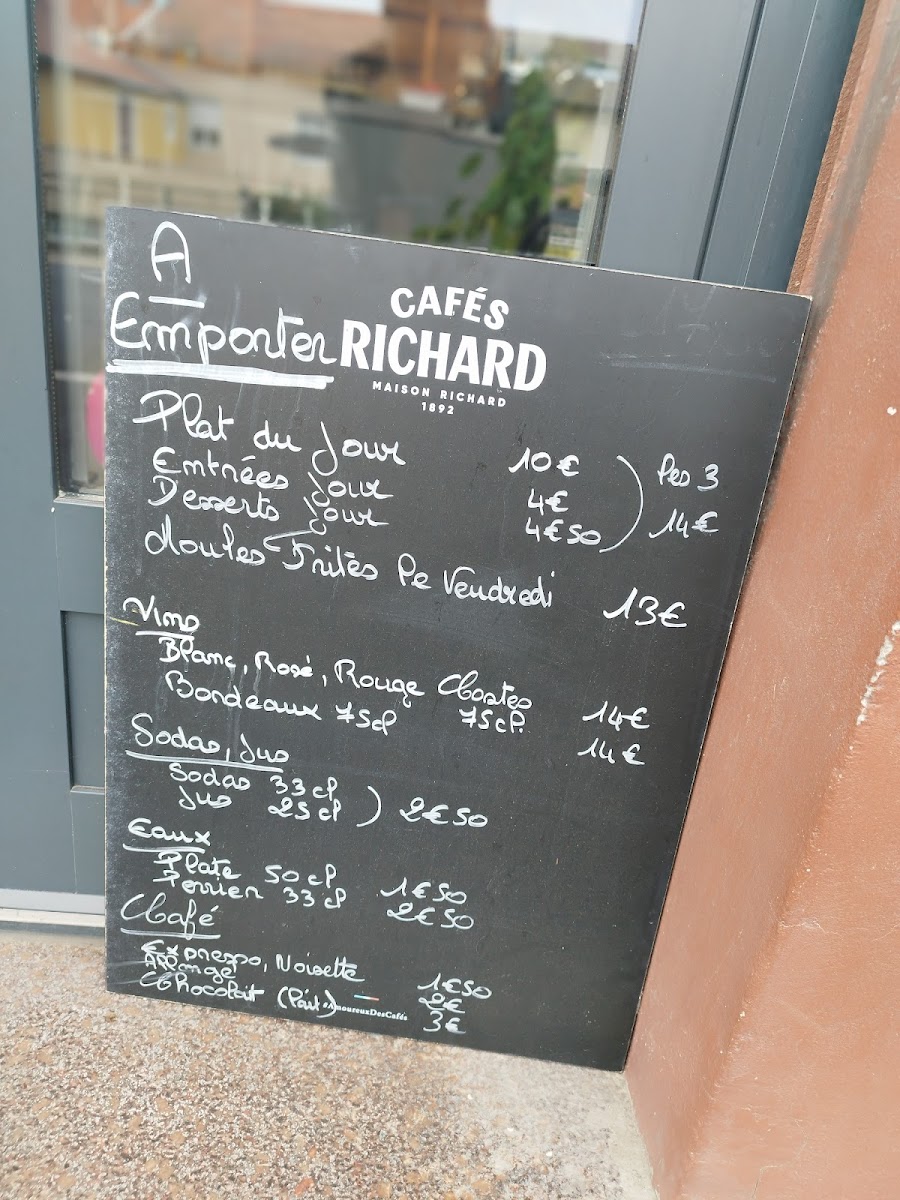 A
Emporter
CAFÉS
RICHARD
MAISON RICHARD
1892
Plat du jour 10€
Entrées jour 4€
Desserts jour 4€50
les 3
14€
Moules Frites le Vendredi 13€
Vins
Blanc, Rosé, Rouge 75cl. 14€
Bordeaux 75cl 14€
Sodas, Jus
Sodas 33cl
Jus 25cl
2€50
Eaux
Plate 50cl 1€50
Perrier 33cl 2€50
Café
Expresso, Noisette 1€50
Allongé 2€
Chocolat 3€
#AmoureuxDesCafés